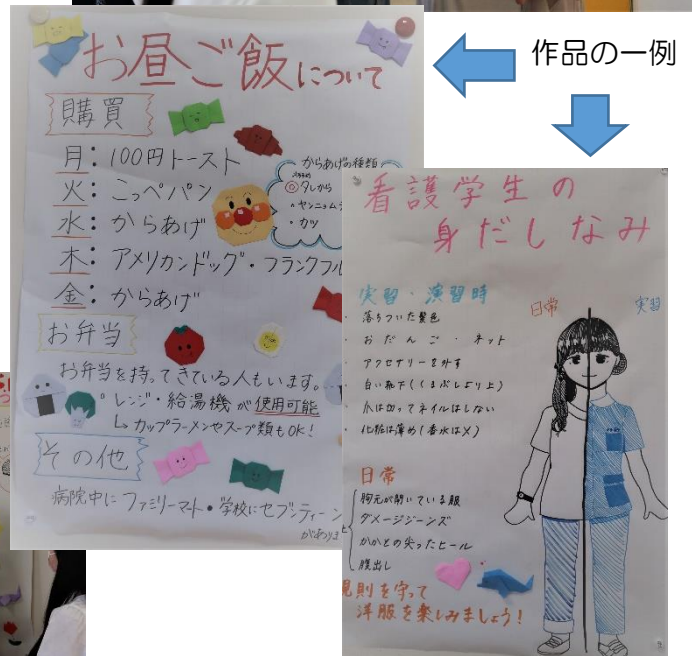 作品の一例
お昼ご飯について
購買
月：100円トースト
火：こっぺパン
水：からあげ
木：アメリカンドッグ・フランクフル
金：からあげ
からあげの種類
◎タレから
・ヤンニョム
・カツ
お弁当
お弁当を持ってきている人もいます。
レンジ・給湯機が使用可能
↳カップラーメンやスープ類もOK！
その他
病院中にファミリーマート・学校にセブンティーン
があります
看護学生の
身だしなみ
実習・演習時
・落ちついた髪色
・おだんご・ネット
・アクセサリーを外す
・白い靴下(くるぶしより上)
・爪は切ってネイルはしない
・化粧は薄め(香水は×)
日常
実習
日常
胸元が開いている服
ダメージジーンズ
かかとの尖ったヒール
腹出し
規則を守って
洋服を楽しみましょう！